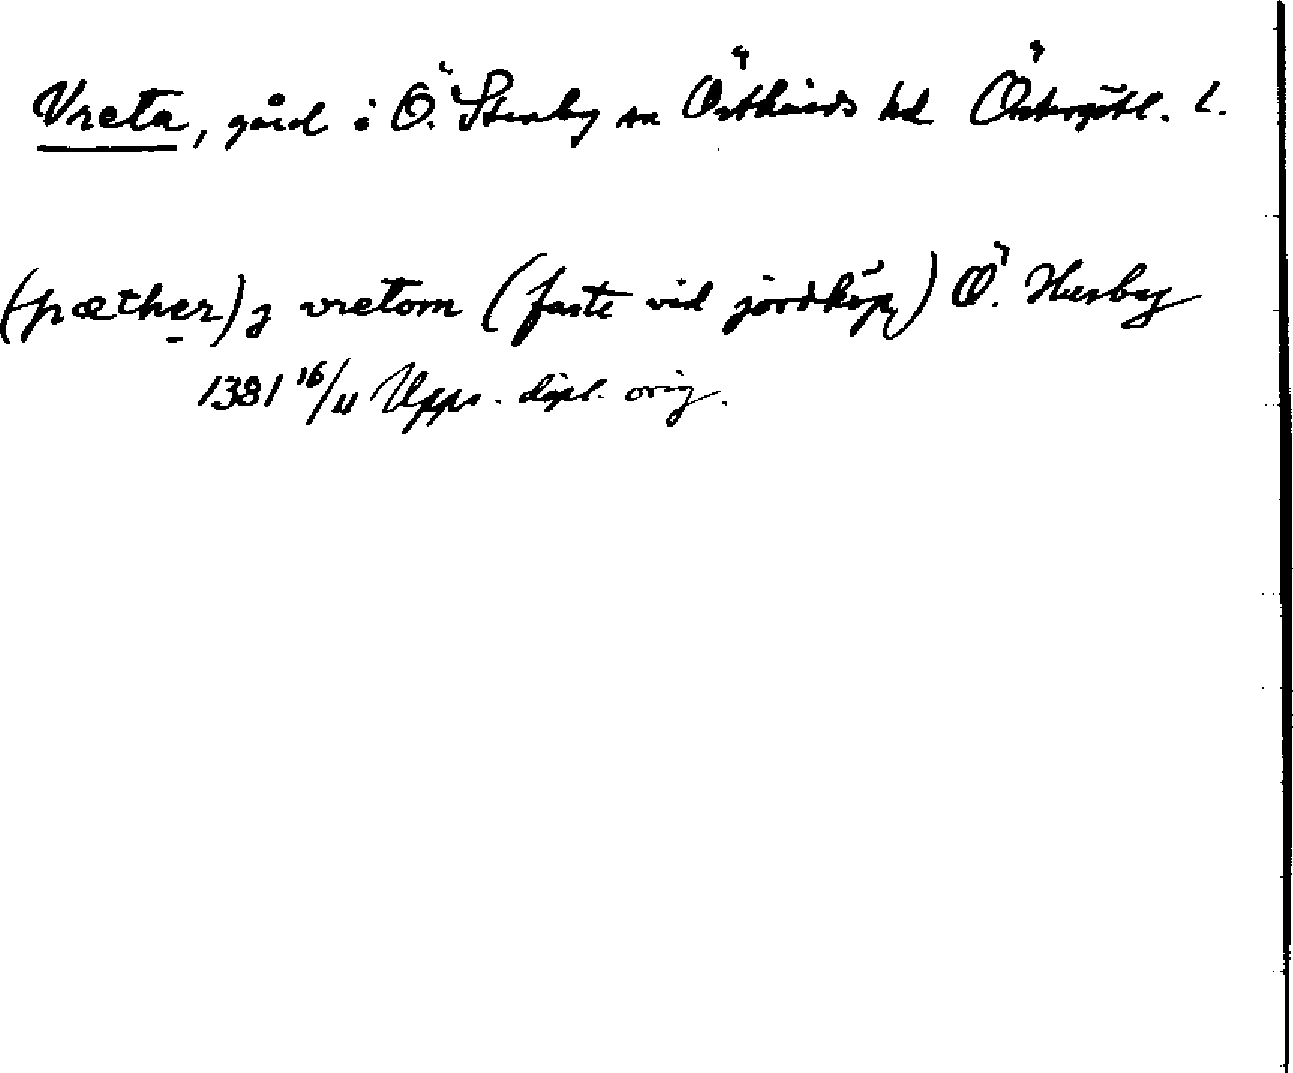 Vreta, gård i Ö. Stenby sn Östkinds hd Östergötl. l.
(pæther) j vretom (faste vid jordköp) Ö. Husby
1381 16/11 Upps. dipl. orig.